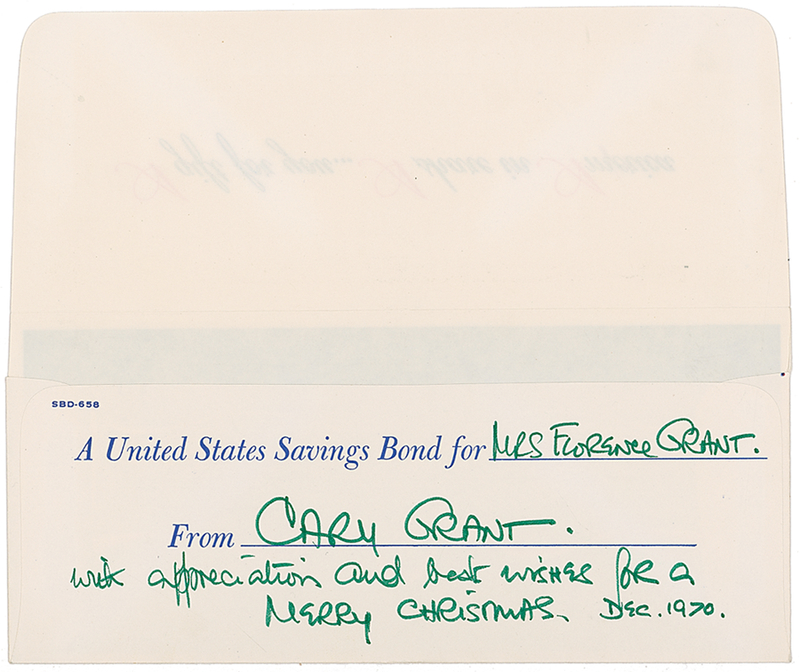 A gift for you... A share in America
SBD-658
A United States Savings Bond for MRS FLORENCE GRANT.
From CARY GRANT.
with appreciation and best wishes for a
MERRY CHRISTMAS. Dec. 1970.